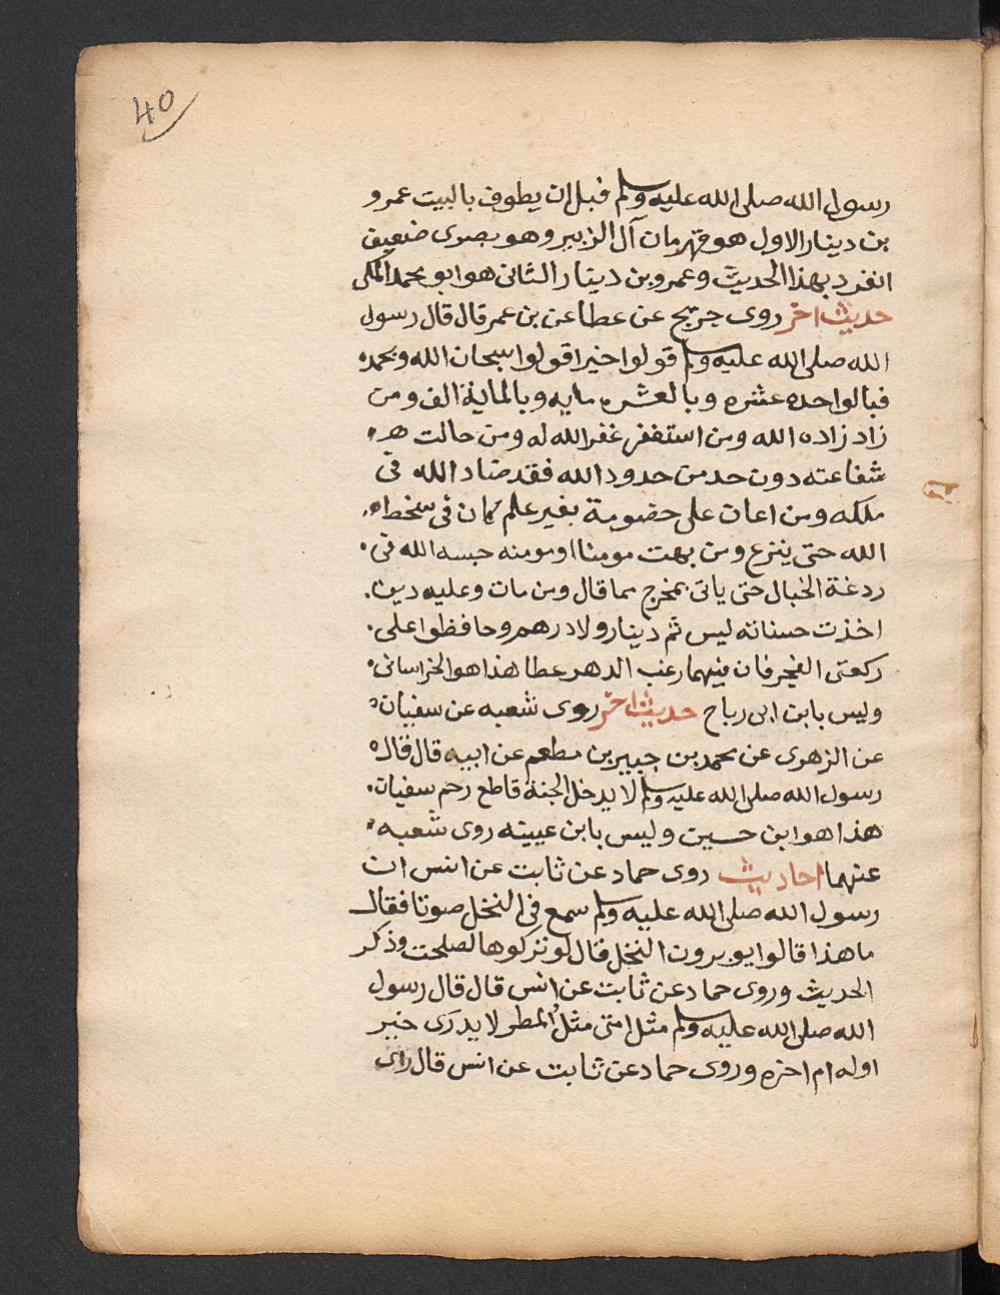 40
رسول الله صلى الله عليه وسلم قبل ان يطوف بالبيت عمرو
بن دينار الاول هو قهرمان آل الزبير وهو بصرى ضعيف
انفرد بهذا الحديث وعمرو بن دينار الثانى هو ابو محمد المكى
حديث اخر روى جريج عن عطا عن بن عمر قال قال رسول
الله صلى الله عليه وسلم قولوا خيرا قولوا سبحان الله وبحمده
فبالواحده عشره وبالعشره مايه وبالماية الف ومن
زاد زاده الله ومن استغفر غفر الله له ومن حالت
شفاعته دون حد من حدود الله فقد ضاد الله فى
ملكه ومن اعان على خضومة بغير علم كان فى سخط
الله حتى ينزع ومن بهت مومنا او مومنه حبسه الله فى
ردغة الخبال حتى ياتى بمخرج مما قال ومن مات وعليه دين
اخذت حسناته ليس ثم دينار ولا درهم وحافظوا على
ركعتى الفجر فان فيهما رغب الدهر عطا هذا هو الخراسانى
وليس بابن ابى رباح حديث اخر روى شعبه عن سفيان
عن الزهرى عن محمد بن جبير بن مطعم عن ابيه قال قال
رسول الله صلى الله عليه وسلم لا يدخل الجنة قاطع رحم سفيان
هذا هو ابن حسين وليس بابن عيينه روى شعبه
عنهما احاديث روى حماد عن ثابت عن انس ان
رسول الله صلى الله عليه وسلم سمع فى النخل صوتا فقال
ما هذا قالوا يوبرون النخل قال لو تركوها لصلحت وذكر
الحديث وروى حماد عن ثابت عن انس قال قال رسول
الله صلى الله عليه وسلم مثل امتى مثل المطر لا يدرى خير
اوله ام اخره وروى حماد عن ثابت عن انس قال راى